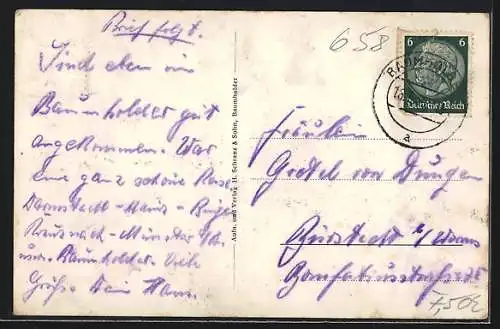 Brief folgt.
Sind eben in
Baumholder gut
angekommen. War
eine ganz schöne Reise
Darmstadt - Mainz - Bingen
Kreuznach - Münster a/St.
usw. Baumholder. Viele
Grüße Dein Hans.
Aufn. und Verlag H. Schramm & Sohn, Baumholder
658
6 6
Deutsches Reich
BAUMHOLDER
a
Fräulein
Gretel von Dungen
Bürstadt b/Worms
Bonifatiusstraße 25
7,50